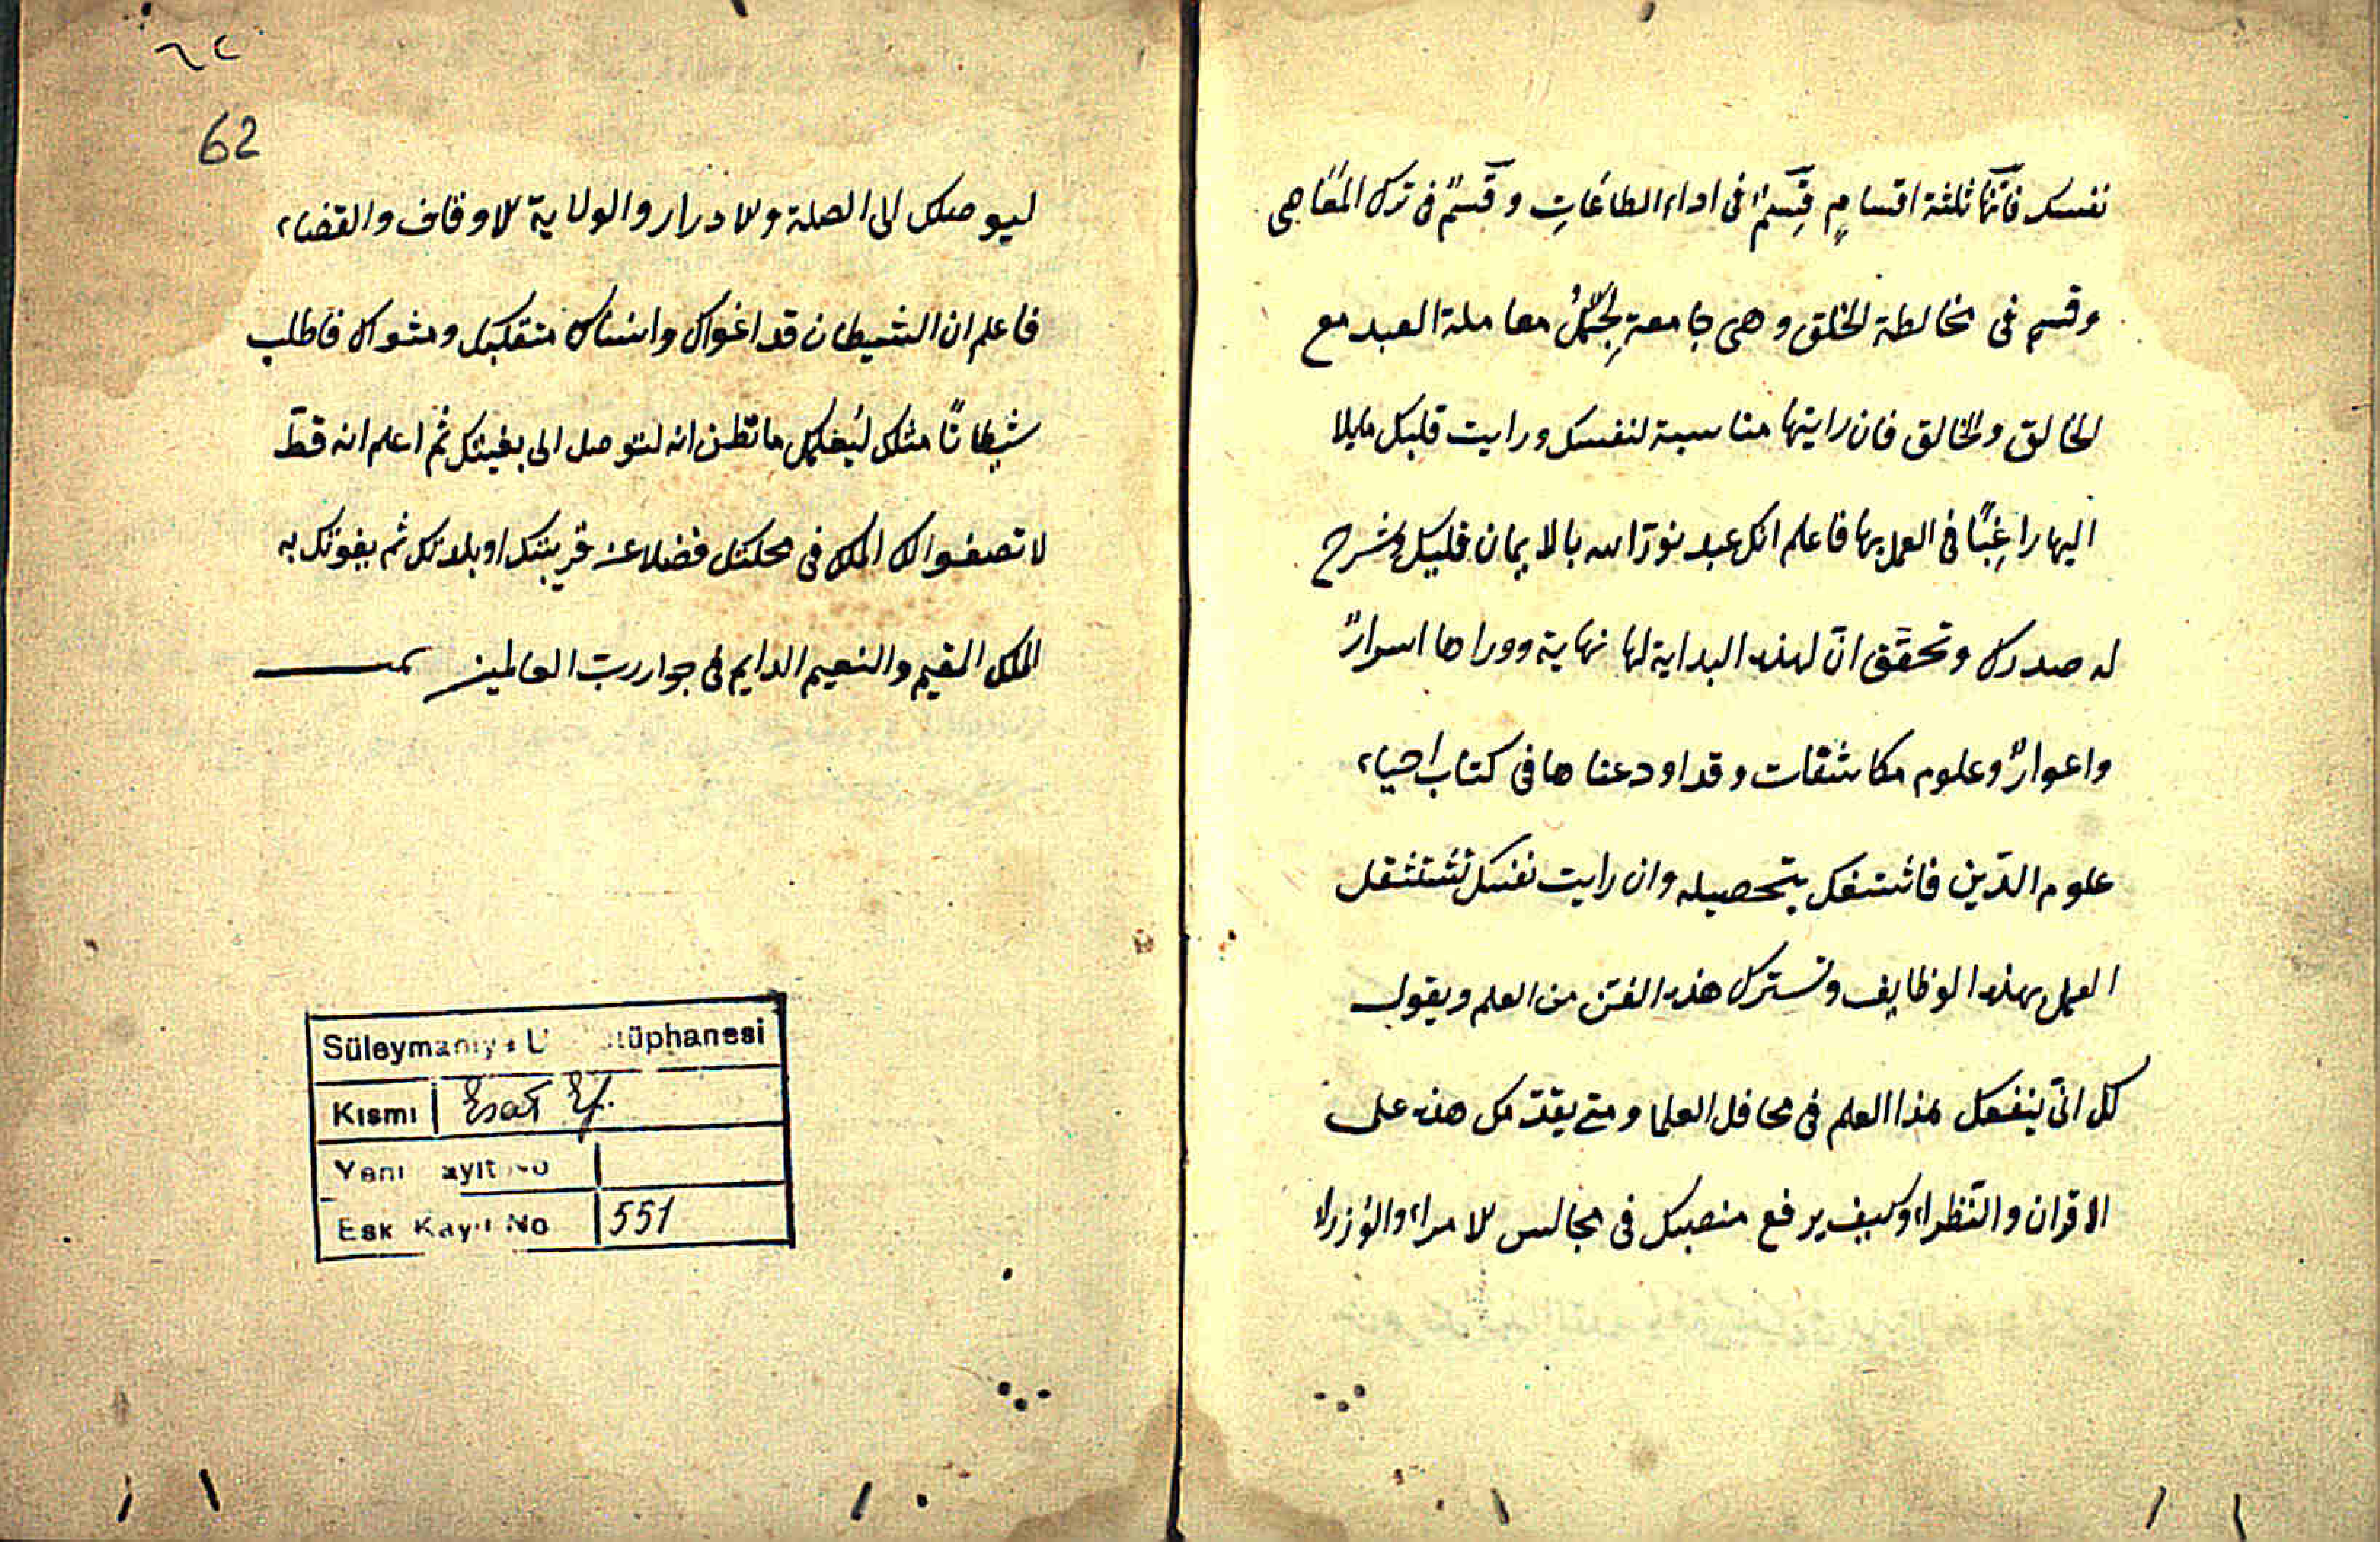 نفسك فانّها ثلثة اقسامٍ قِسَمٌ فى اداء الطاعَاتِ وقَسَمٌ فى ترك المعَاصى
وقسم فى مخالطة الخلق وهى جامعةِ لجُمَلُ معاملة العبد مع
الخالق والخالق فان رايتها مناسبة لنفسك ورايت قلبك مايلا
اليها راغِبًا فى العمل بها فاعلم انك عبد نوّرَ الله بالايمان قلبك وشرح
له صدرك وتحقَّق انّ لهذه البداية لها نهاية ووراها اسرارٌ
واعوارٌ وعلوم مكاشفات وقد اودعناها فى كتاب احياء
علوم الدّين فاشتغل بتحصيله وان رايت نفسك تستثقل
العمل بهذه الوظايف وتسترك هذه الفنّ من العلم ويقول
لك انّى ينفعك هذا العلم فى محافل العلما ومتى يقدّمك هذه على
الاقران والنّظراء وكيف يرفع منصبك فى مجالس الامراء والوُزراء
٦٢
62
ليوصلك الى الصلة والادرار والولاية الاوقاف والقضاء
فاعلم ان الشيطان قد اغواك وانساك متقلبك ومثواك فاطلب
شيطانًا مثلك ليُعلمك ما تظن انه لتوصل الى بغيتك ثم اعلم انه قطّ
لا تصفوا لك الملك فى محلتك فضلا عن قريتك او بلدتك ثم يفوتك به
الملك المقيم والنعيم الدايم فى جوار ربّ العالمين تمت
Süleymaniye U Kütüphanesi
Kısmı Esat Ef.
Yeni Kayıt No
Eski Kayıt No 551